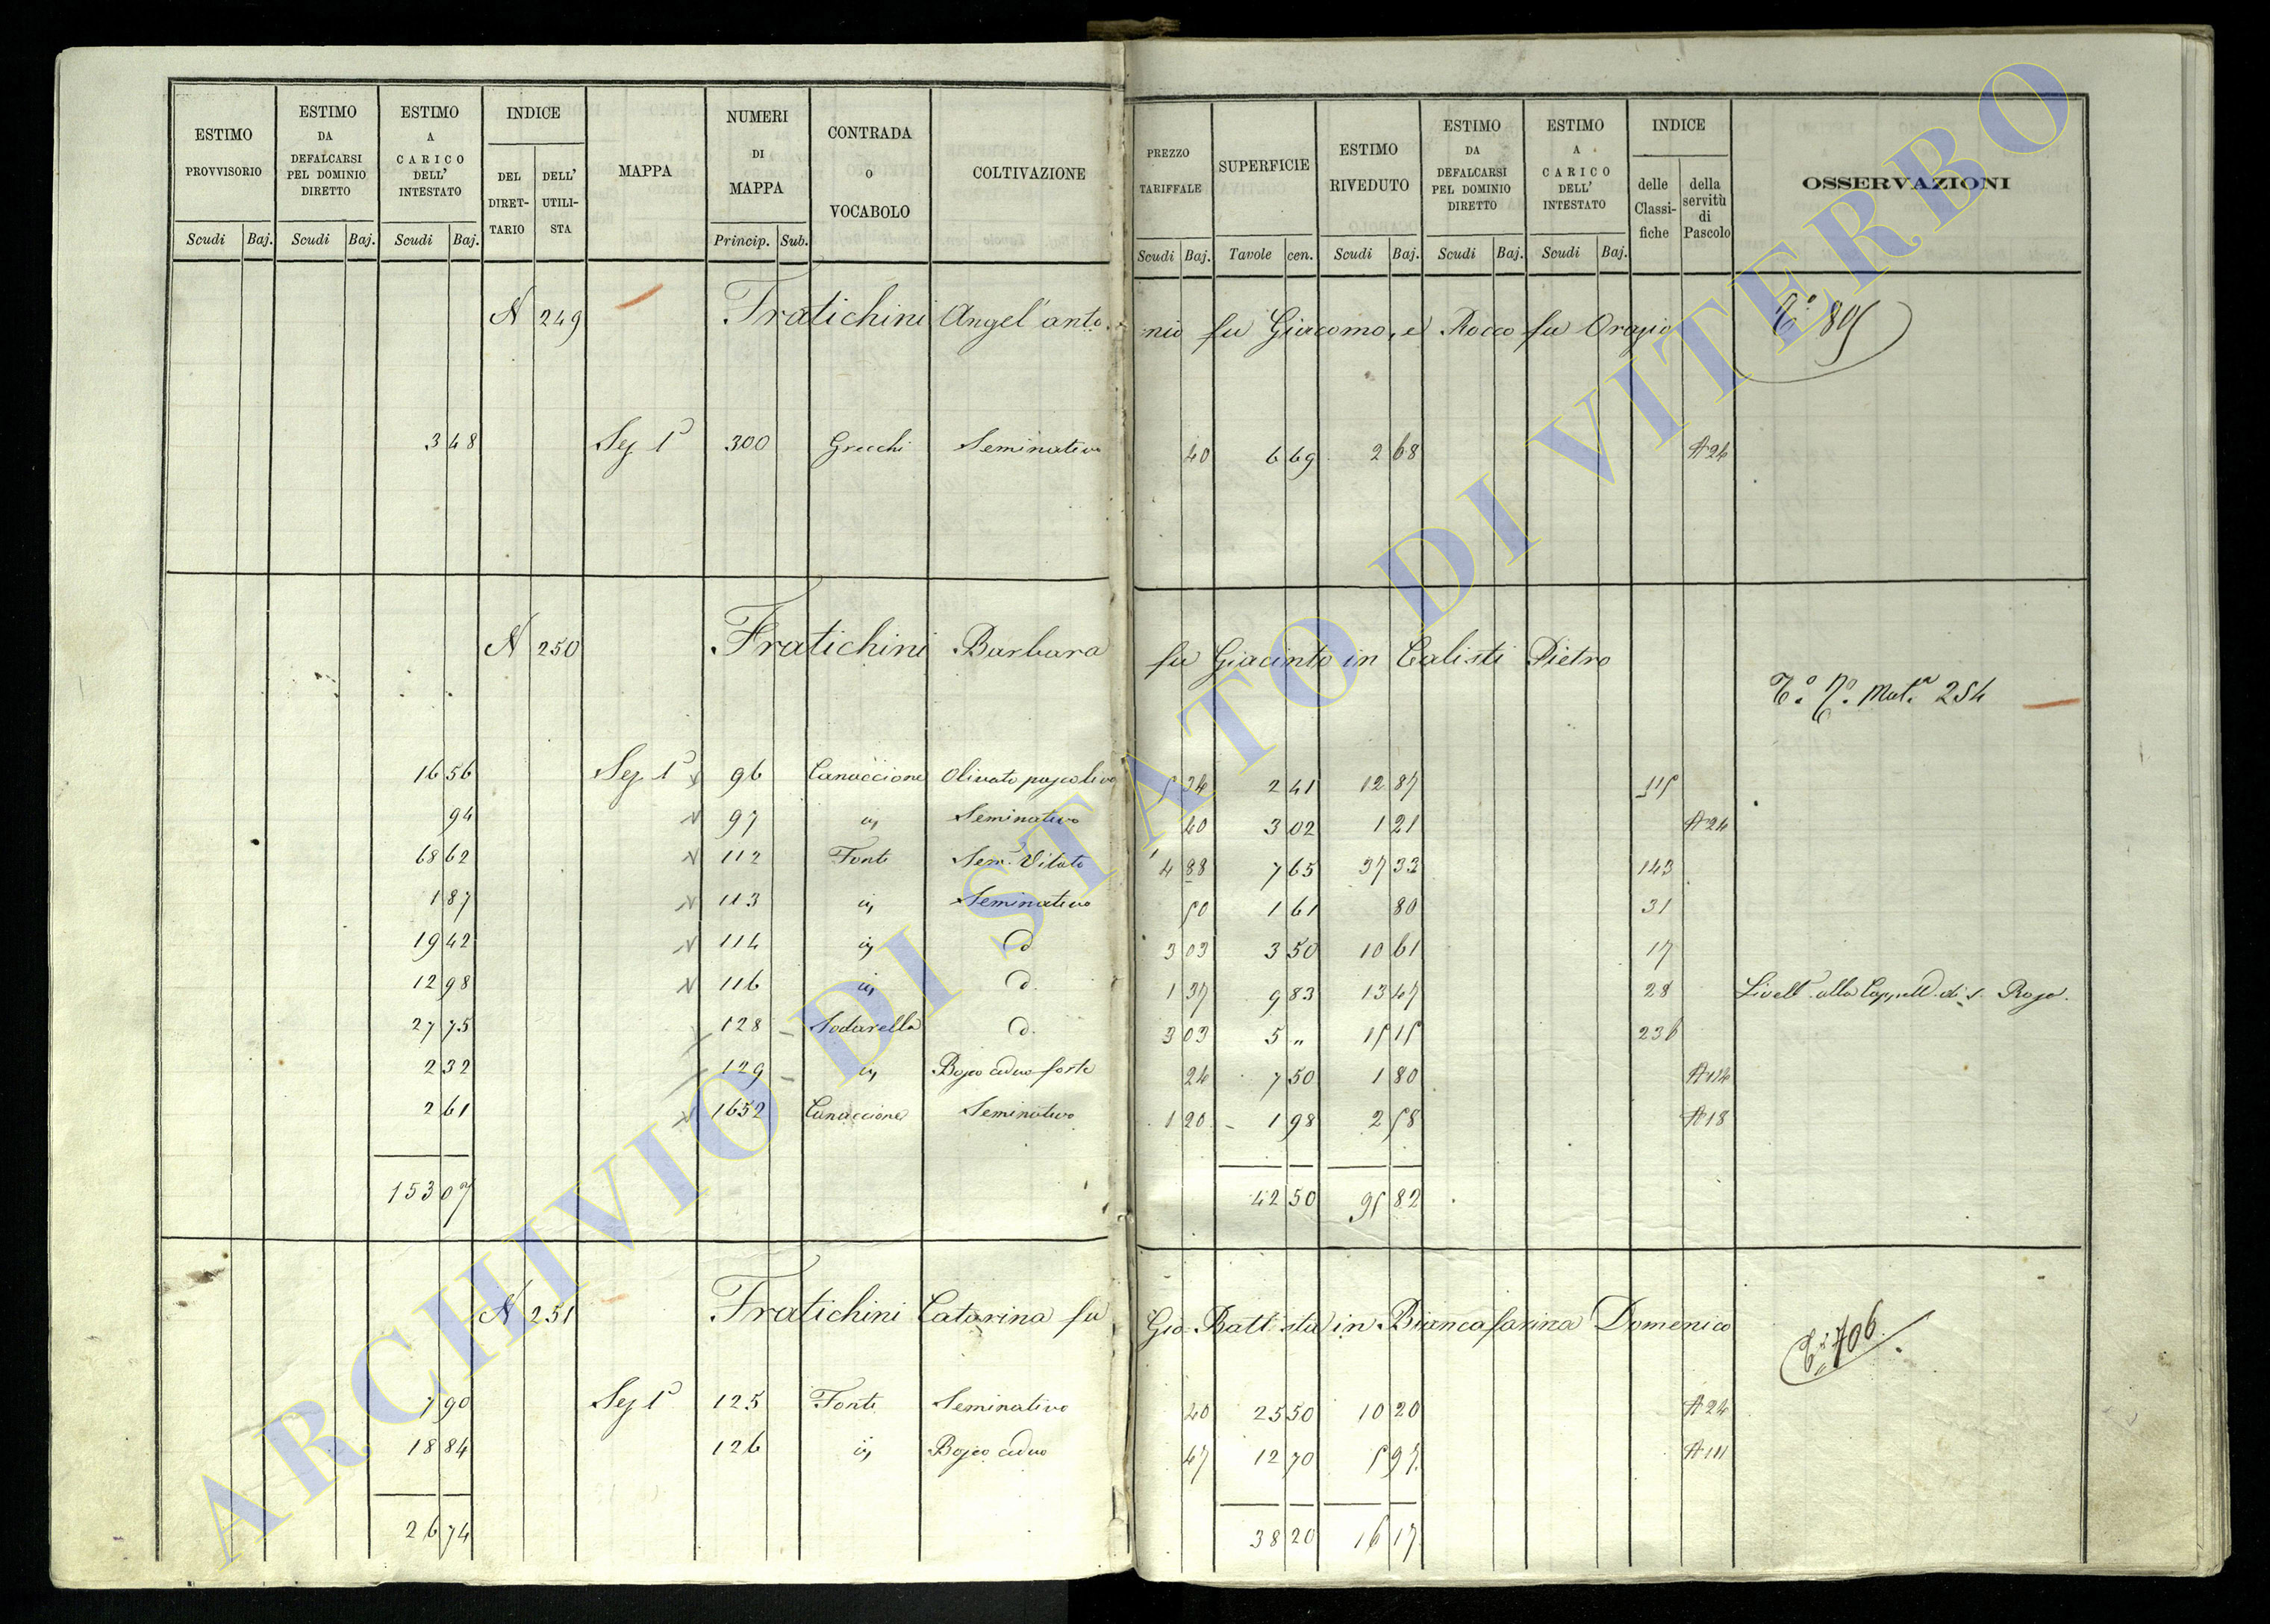 ESTIMO PROVVISORIO | ESTIMO DA DEFALCARSI PEL DOMINIO DIRETTO | ESTIMO A CARICO DELL' INTESTATO | INDICE | MAPPA | NUMERI DI MAPPA | CONTRADA O VOCABOLO | COLTIVAZIONE | PREZZO TARIFFALE | SUPERFICIE | ESTIMO RIVEDUTO | ESTIMO DA DEFALCARSI PEL DOMINIO DIRETTO | ESTIMO A CARICO DELL' INTESTATO | INDICE | OSSERVAZIONI
DEL DIRET-TARIO | DELL' UTILI-STA | delle Classi-fiche | della servitù di Pascolo
Scudi | Baj. | Scudi | Baj. | Scudi | Baj. | Princip. | Sub. | Scudi | Baj. | Tavole | cen. | Scudi | Baj. | Scudi | Baj. | Scudi | Baj.
N 249 Fratichini Angel'antonio fu Giacomo, e Rocco fu Orazio
3 48 Sez 1ª 300 Grecchi Seminativo 40 6 69 2 68 A 24
N 250 Fratichini Barbara fu Giacinto in Calisti Pietro
Mat.ª 254
16 56 Sez 1ª 96 Canaccione Olivato pascolivo 5 34 2 41 12 87 115
94 97 Seminativo 40 3 02 1 21 A 24
68 62 112 Fonte Sem. Vitato 4 88 7 65 37 33 143
1 87 113 Seminativo 50 1 61 80 31
19 42 114 d 3 03 3 50 10 61 17
12 98 116 d. 1 37 9 83 13 47 28 Livell. alla Cappell. di S.
27 75 128 Sodarella d. 3 03 5 „ 15 15 236
2 32 129 Bosco ceduo forte 24 7 50 1 80 A 114
2 61 1652 Canaccione Seminativo 1 20 1 98 2 58 A 18
153 07 42 50 95 82
N 251 Fratichini Catarina fu Gio Battista in Biancafarina Domenico
706
7 90 Sez 1ª 125 Fonte Seminativo 40 25 50 10 20 A 24
18 84 126 Bosco ceduo 47 12 70 5 97 A 111
26 74 38 20 16 17
ARCHIVIO DI STATO DI VITERBO